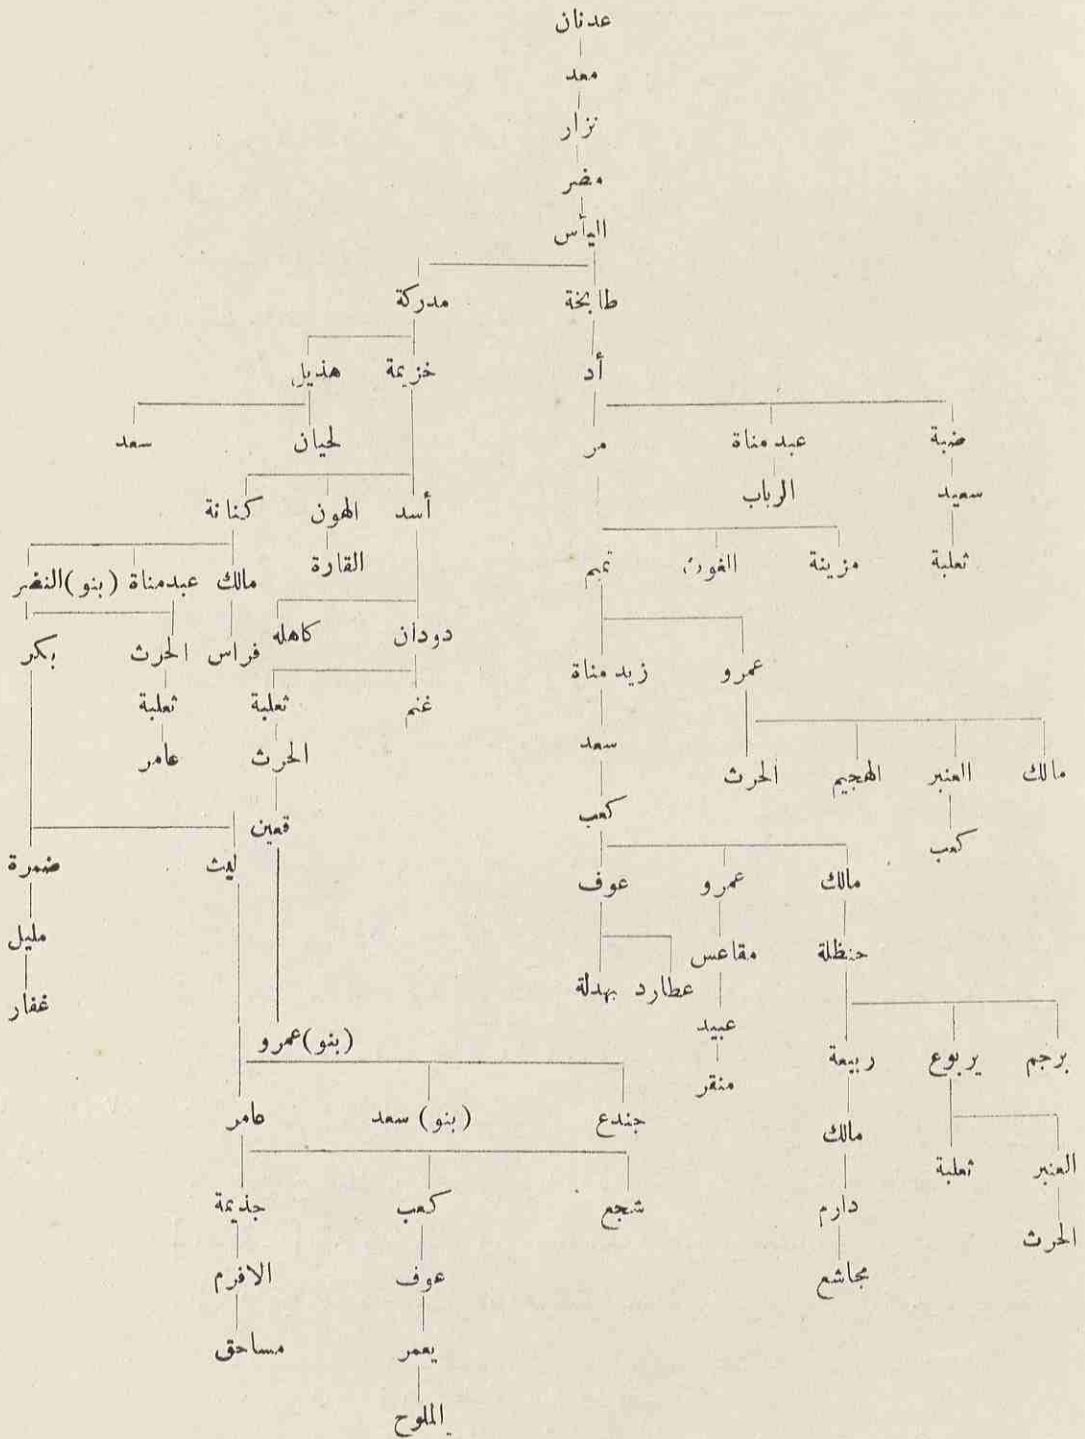 عدنان
معد
نزار
مضر
اليأس
طابخة مدركة
أد خزيمة هذيل
ضبة عبد مناة مر لحيان سعد
سعيد الرباب أسد الهون كنانة
ثعلبة مزينة الغوث تميم القارة
مالك عبدمناة (بنو) النضر
عمرو زيد مناة دودان كاهله فراس الحرث بكر
غنم ثعلبة ثعلبة
مالك العنبر الهجيم الحرث سعد الحرث عامر
كعب كعب قعين
مالك عمرو عوف ليث ضمرة
حنظلة مقاعس عطارد بهدلة مليل
عبيد غفار
برجم يربوع ربيعة منقر (بنو) عمرو
مالك جندع (بنو) سعد عامر
العنبر ثعلبة
دارم شجع كعب جذيمة
الحرث
مجاشع عوف الافرم
يعمر مساحق
الملوح